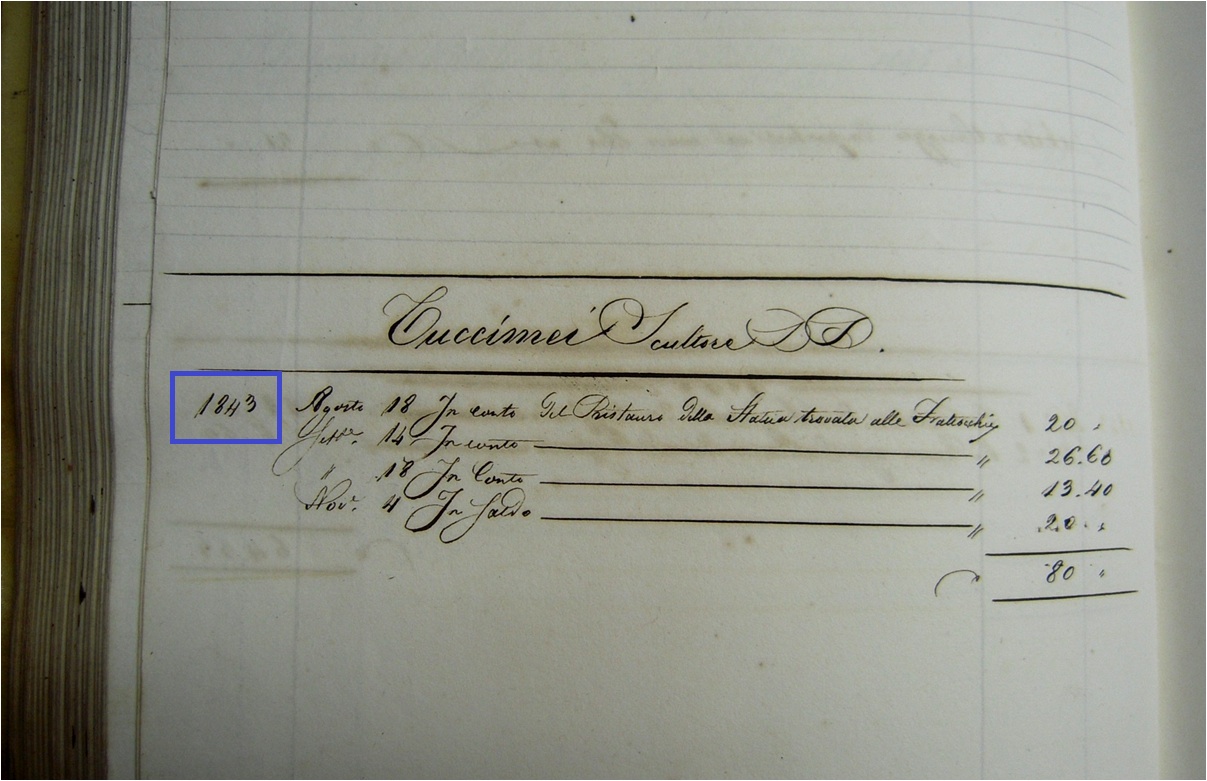 Tuccimei Scultore
1843 Agosto 18 In conto del Ristauro della Statua trovata alle Frattocchie 20 "
Settre. 14 In conto " 26.60
" 18 In Conto " 13.40
Nov. 4 In Saldo " 20 "
80 "